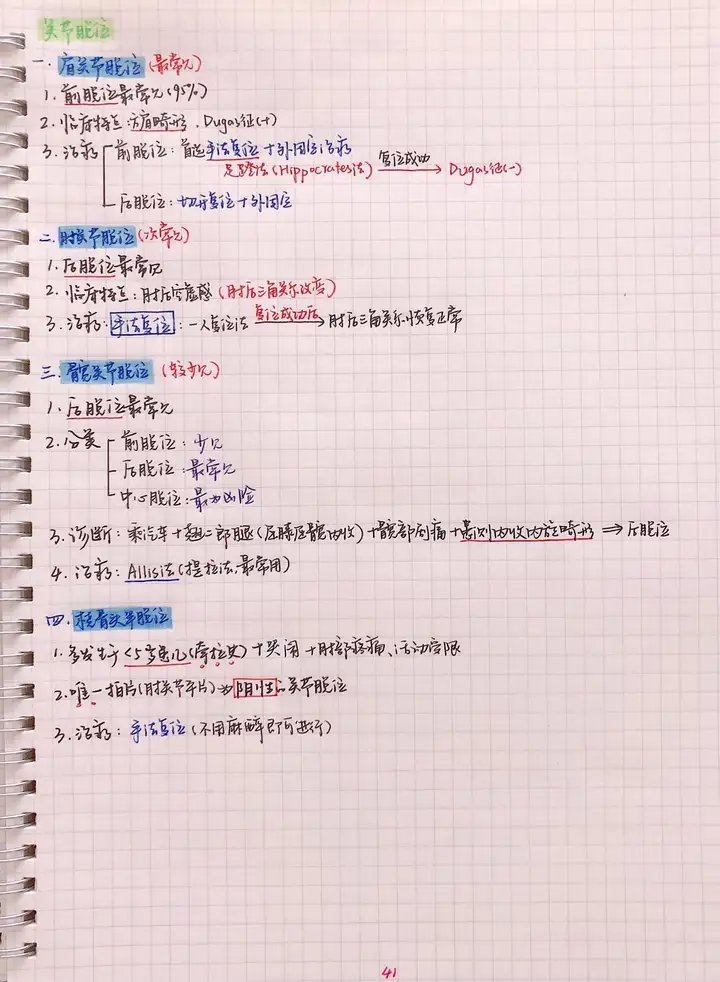 关节脱位
一. 肩关节脱位 (最常见)
1. 前脱位最常见 (95%)
2. 临床特点: 方肩畸形. Dugas征(+)
3. 治疗 前脱位: 首选手法复位 + 外固定治疗
足蹬法 (Hippocrates法) 复位成功 → Dugas征(-)
后脱位: 切开复位 + 外固定
二. 肘关节脱位 (次常见)
1. 后脱位最常见
2. 临床特点: 肘后空虚感 (肘后三角关系改变)
3. 治疗: 手法复位: 一人复位法 复位成功后 → 肘后三角关系恢复正常
三. 髋关节脱位 (较少见)
1. 后脱位最常见
2. 分类 前脱位: 少见
后脱位: 最常见
中心脱位: 最为凶险
3. 诊断: 乘汽车 + 翘二郎腿 (屈膝屈髋内收) + 髋部剧痛 + 患侧内收内旋畸形 ⇒ 后脱位
4. 治疗: Allis法 (提拉法, 最常用)
四. 桡骨头半脱位
1. 多发生于 <5岁患儿 (牵拉史) + 哭闹 + 肘部疼痛、活动受限
2. 唯一拍片 (肘关节平片) 阴性 关节脱位
3. 治疗: 手法复位 (不用麻醉即可进行)
41